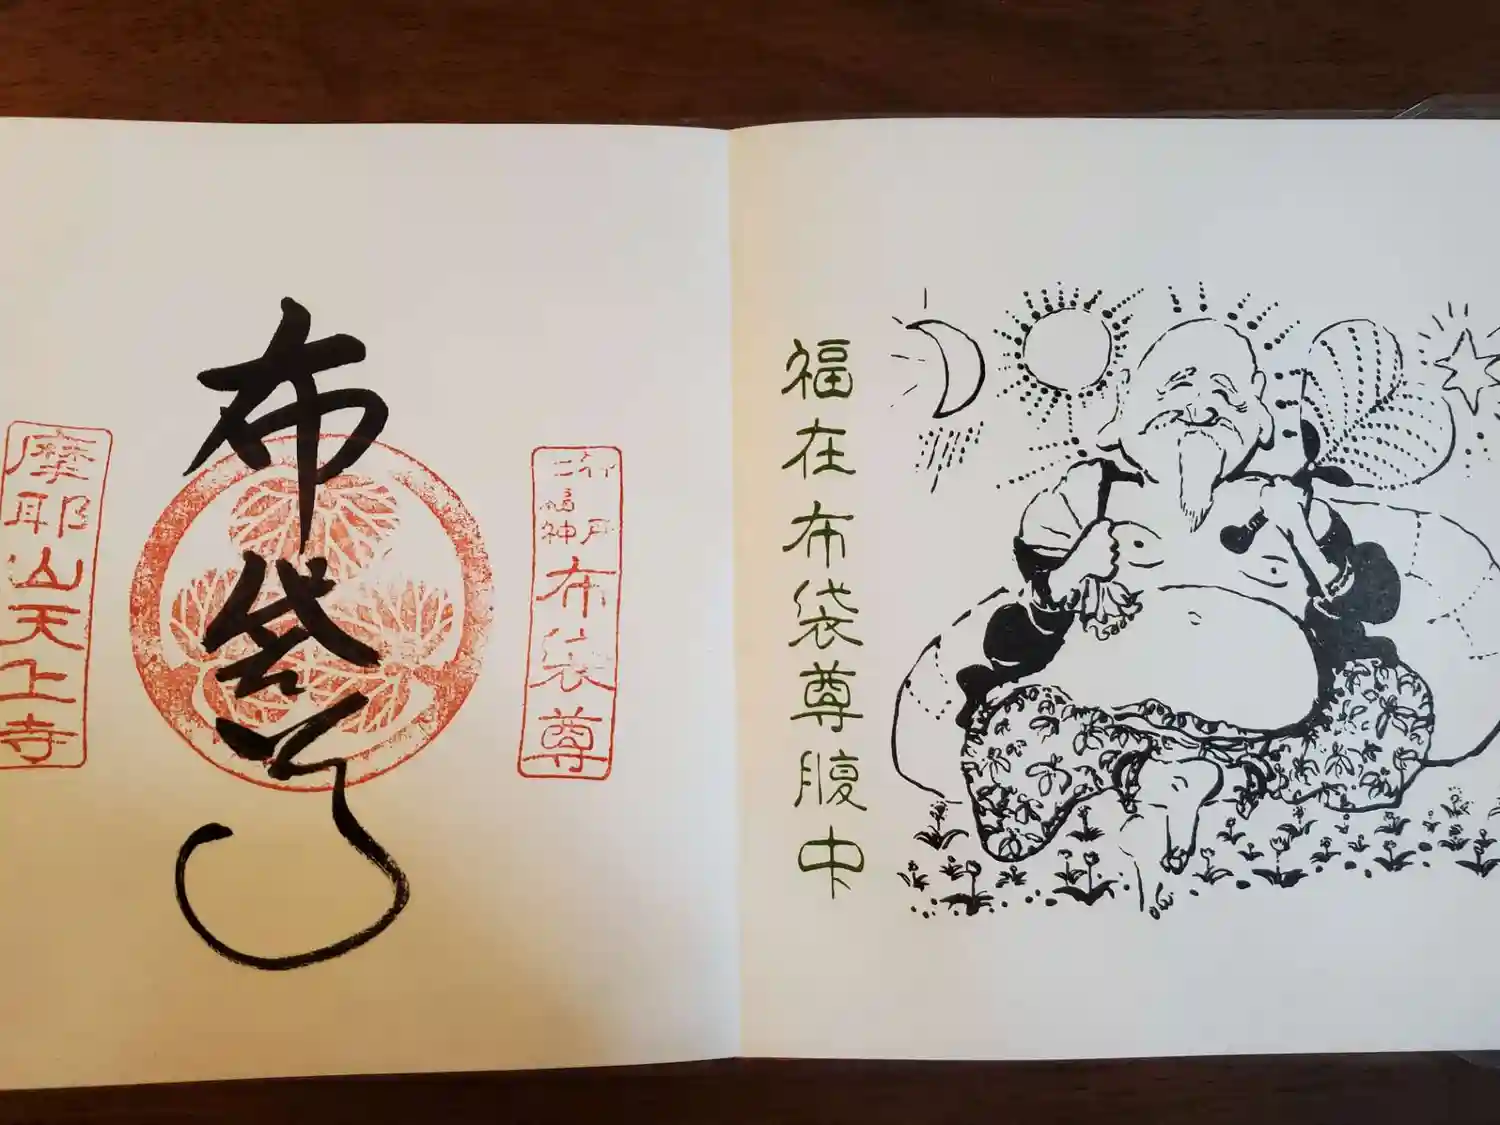 福在布袋尊腹中
神戸
七福神
布袋尊
布袋尊
摩耶山天上寺